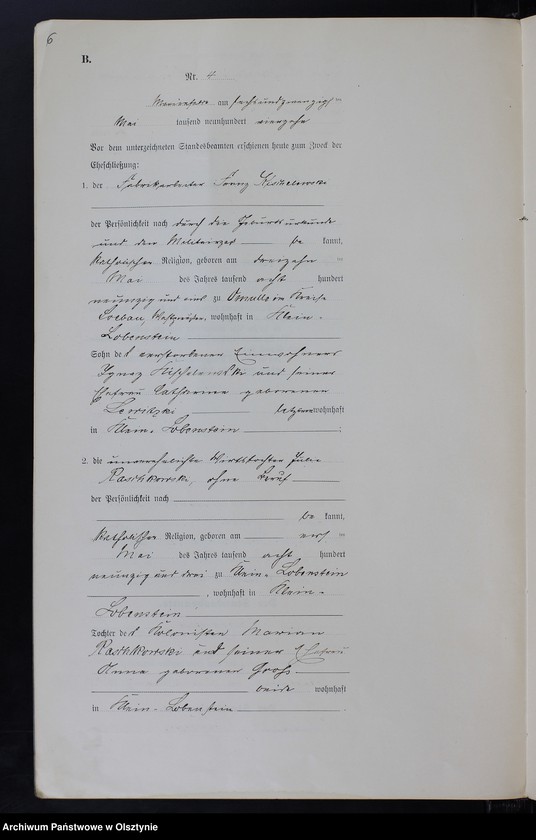 6
B.
Nr. 4
Marienfelde am sechsundzwanzigsten
Mai tausend neunhundert vierzehn
Vor dem unterzeichneten Standesbeamten erschienen heute zum Zweck der
Eheschließung:
1. der Fabrikarbeiter Franz Kischelewski
der Persönlichkeit nach durch die Geburtsurkunde
und den Militairpaß be kannt,
katholischer Religion, geboren am dreizehn ten
Mai des Jahres tausend acht hundert
neunzig und eins zu Omulle im Kreise
Loebau, Westpreußen, wohnhaft in Klein-
Lobenstein
Sohn des verstorbenen Einwohners
Ignaz Kischelewski und seiner
Ehefrau Catharina geborenen
Lewitzki letztere wohnhaft
in Klein-Lobenstein
2. die unverehelichte Wirtstochter Julie
Raschkowski, ohne Beruf
der Persönlichkeit nach
be kannt,
katholischer Religion, geboren am ersten
Mai des Jahres tausend acht hundert
neunzig und drei zu Klein-Lobenstein
, wohnhaft in Klein-
Lobenstein
Tochter des Kolonisten Marian
Raschkowski und seiner Ehefrau
Anna geborenen Groß
beide wohnhaft
in Klein-Lobenstein
Archiwum Państwowe w Olsztynie